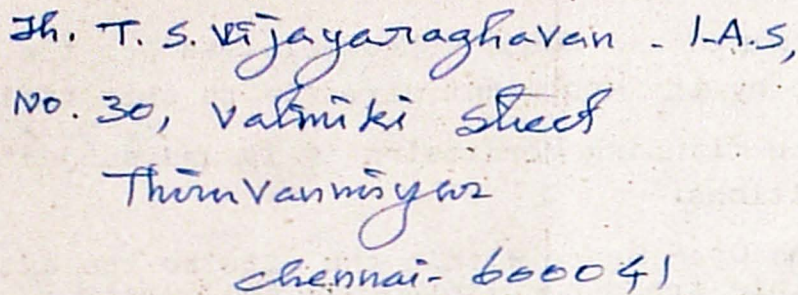 Th. T. S. Vijayaraghavan - I.A.S,
No. 30, Valmiki street
Thiruvanmiyur
chennai- 600041